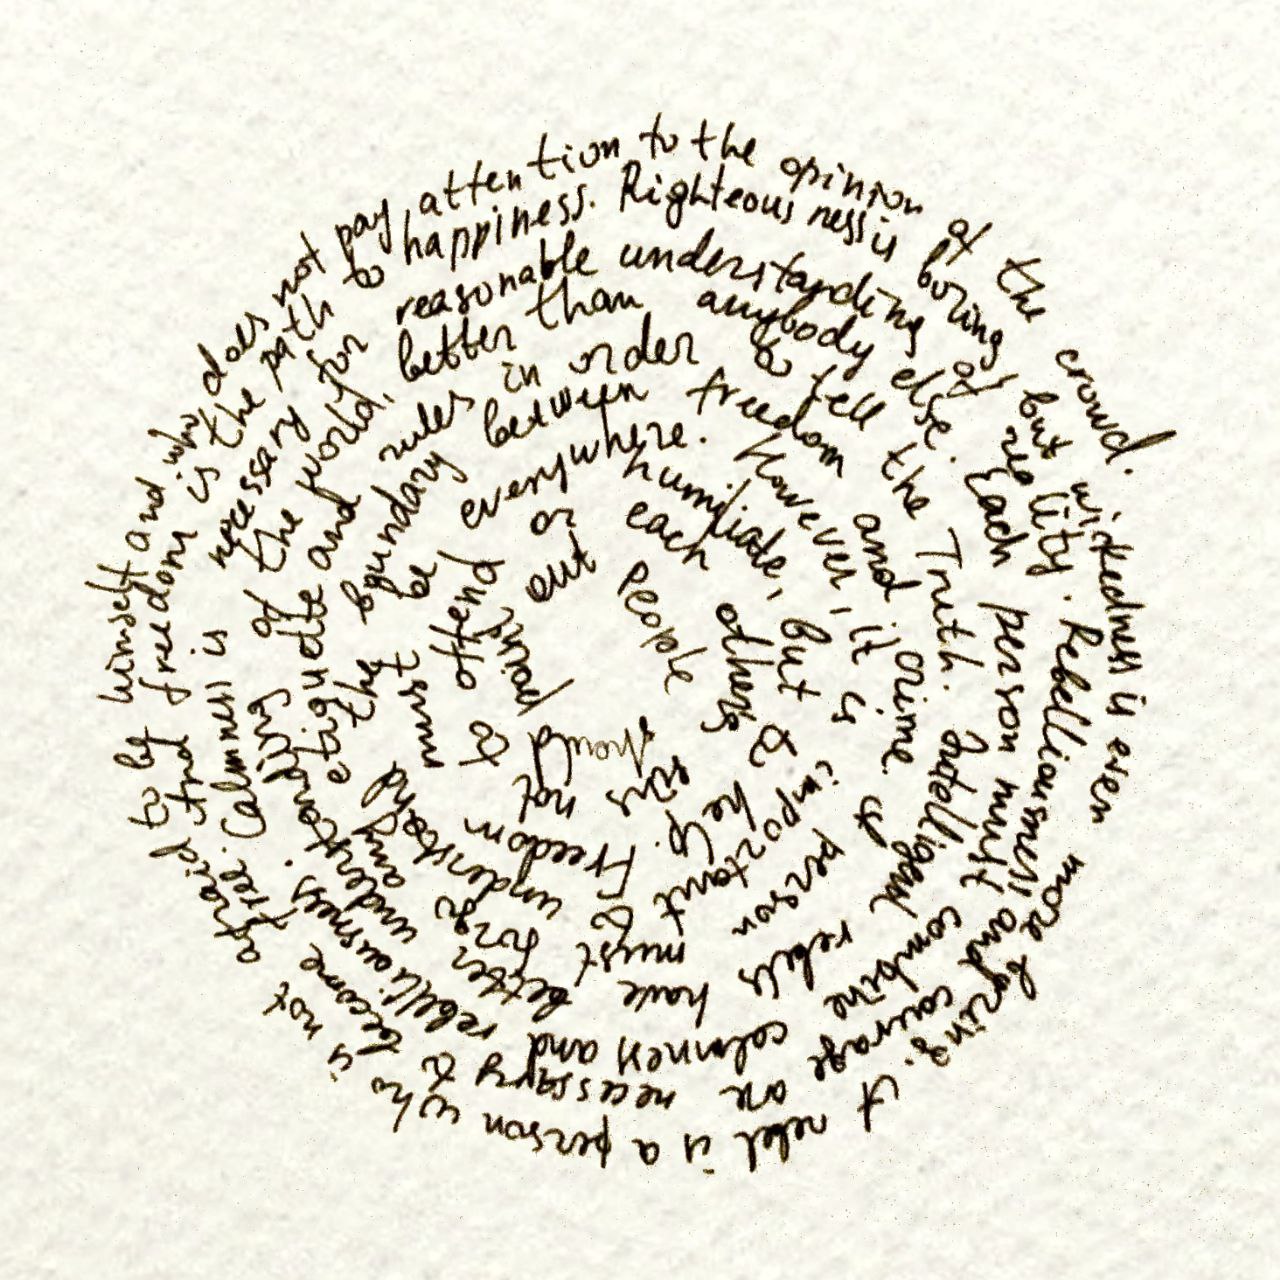 People should point out each others sins not to offend or humiliate, but to help. Freedom must be everywhere. However, it is important to understand the boundary between freedom and crime. A person must forge any etiquette and rules in order to tell the Truth. Intelligent rebels have better understanding of the world, better than anybody else. Each person must combine calmness and rebelliousness. Calmness is necessary for reasonable understanding of reality. Rebelliousness and courage are necessary to become free. And freedom is the path to happiness. Righteousness is boring but wickedness is even more boring. A rebel is a person who is not afraid to be himself and who does not pay attention to the opinion of the crowd.